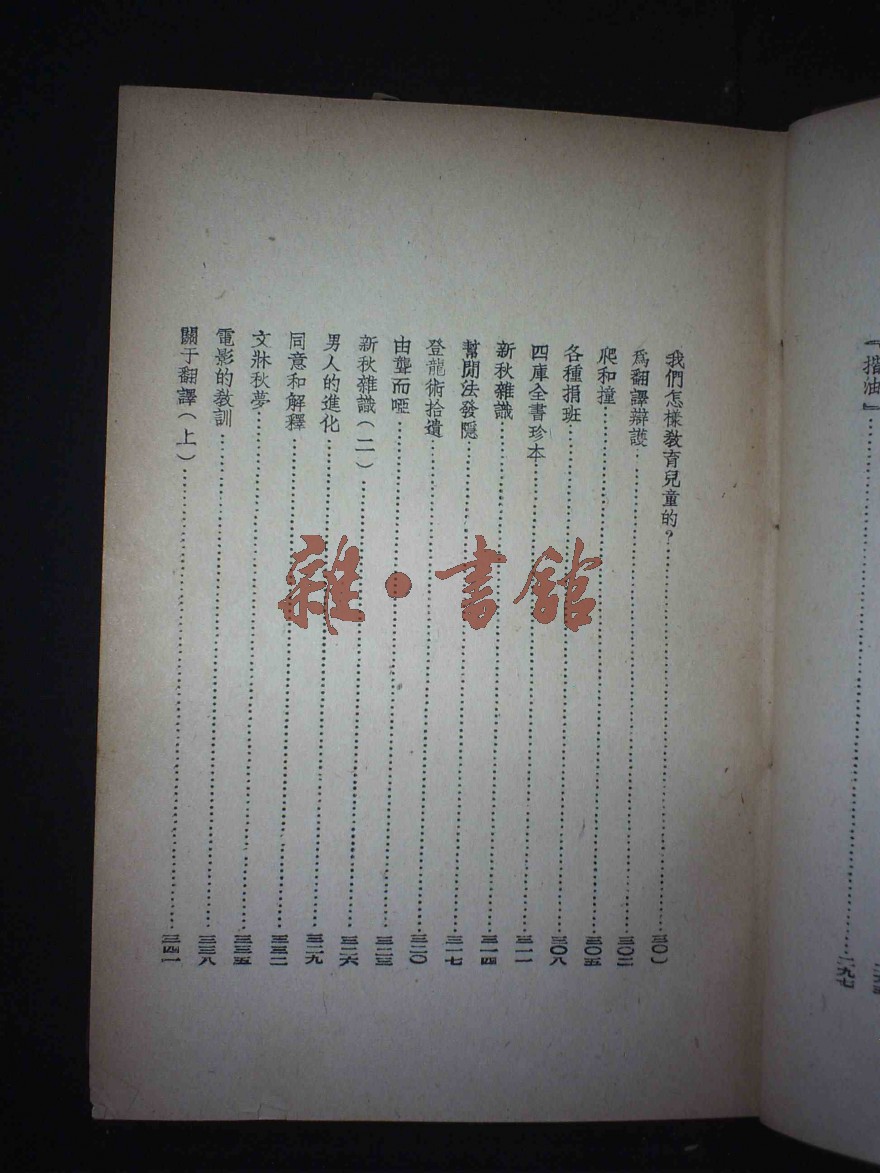 『揩油』……二九七
我們怎樣教育兒童的？……三〇一
爲翻譯辯護……三〇三
爬和撞……三〇五
各種捐班……三〇八
四庫全書珍本……三一一
新秋雜識……三一四
幫閒法發隱……三一七
登龍術拾遺……三二〇
由聾而啞……三二三
新秋雜識（二）……三二六
男人的進化……三二九
同意和解釋……三三二
文牀秋夢……三三五
電影的教訓……三三八
關于翻譯（上）……三四一
雜·書館